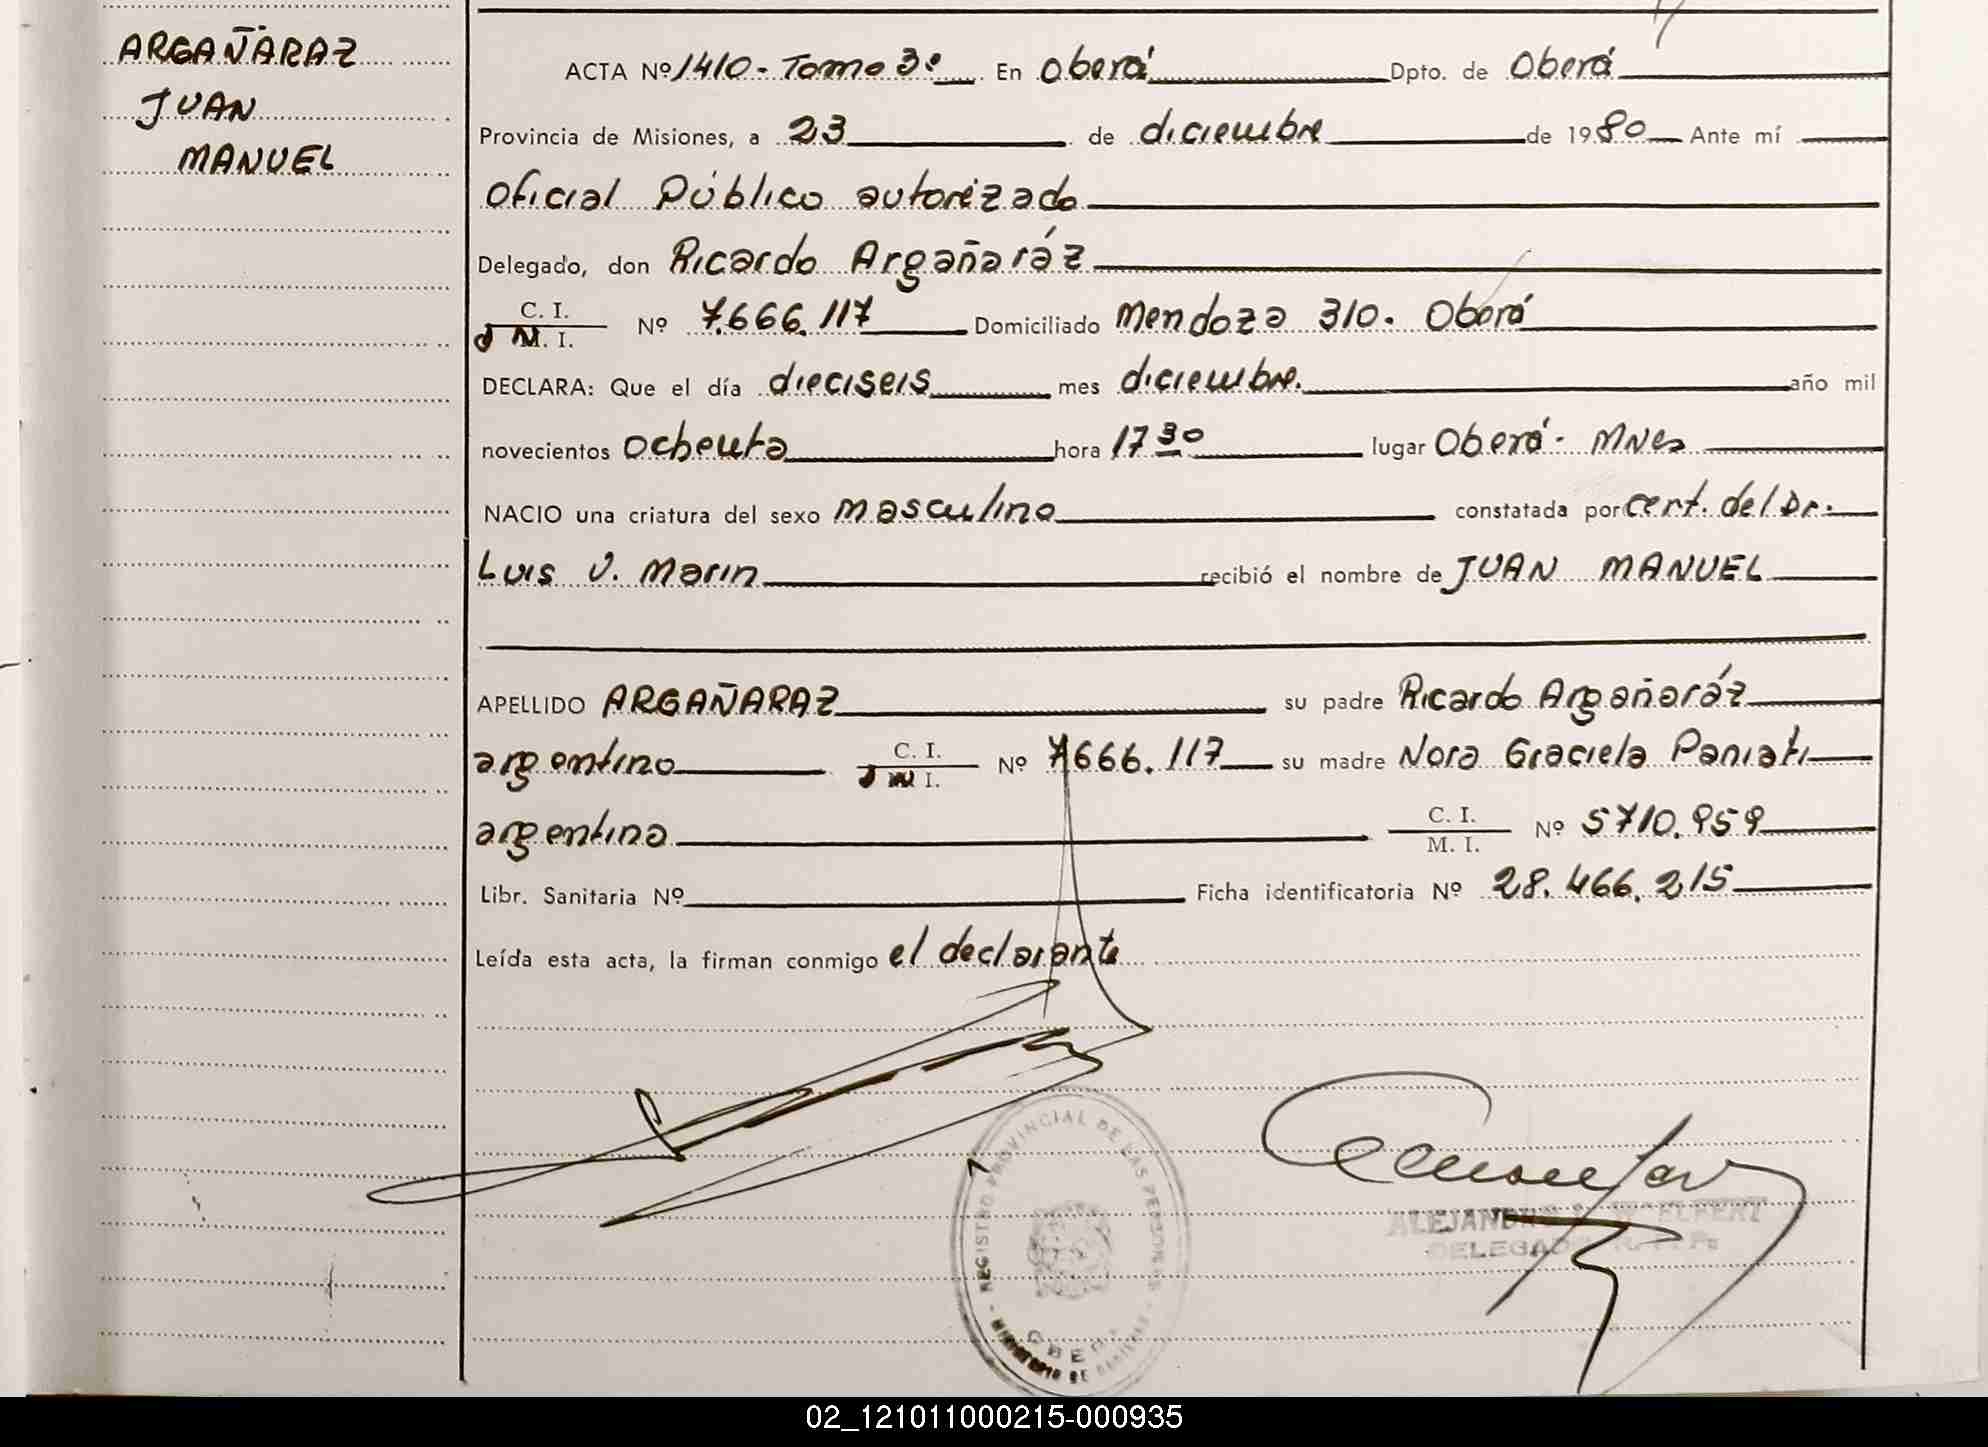 ARGAÑARAZ
JUAN
MANUEL
ACTA Nº 1410 - Tomo 3º En Oberá Dpto. de Oberá
Provincia de Misiones, a 23 de diciembre de 1980 Ante mí
Oficial Público autorizado
Delegado, don Ricardo Argañaráz
C. I.
M. I. Nº 7.666.117 Domiciliado Mendoza 310. Oberá
DECLARA: Que el día dieciseis mes diciembre. año mil
novecientos ochenta hora 17 30 lugar Oberá - Mnes
NACIO una criatura del sexo masculino constatada por cert. del Dr.
Luis V. Marin recibió el nombre de JUAN MANUEL
APELLIDO ARGAÑARAZ su padre Ricardo Argañaráz
argentino C. I. Nº 7666.117 su madre Nora Graciela Paniati
argentina C. I.
M. I. Nº 5710.959
Libr. Sanitaria Nº Ficha identificatoria Nº 28.466.215
Leída esta acta, la firman conmigo el declarante
REGISTRO PROVINCIAL DE LAS PERSONAS
OBERA
ALEJANDRO
DELEGADO
02_121011000215-000935